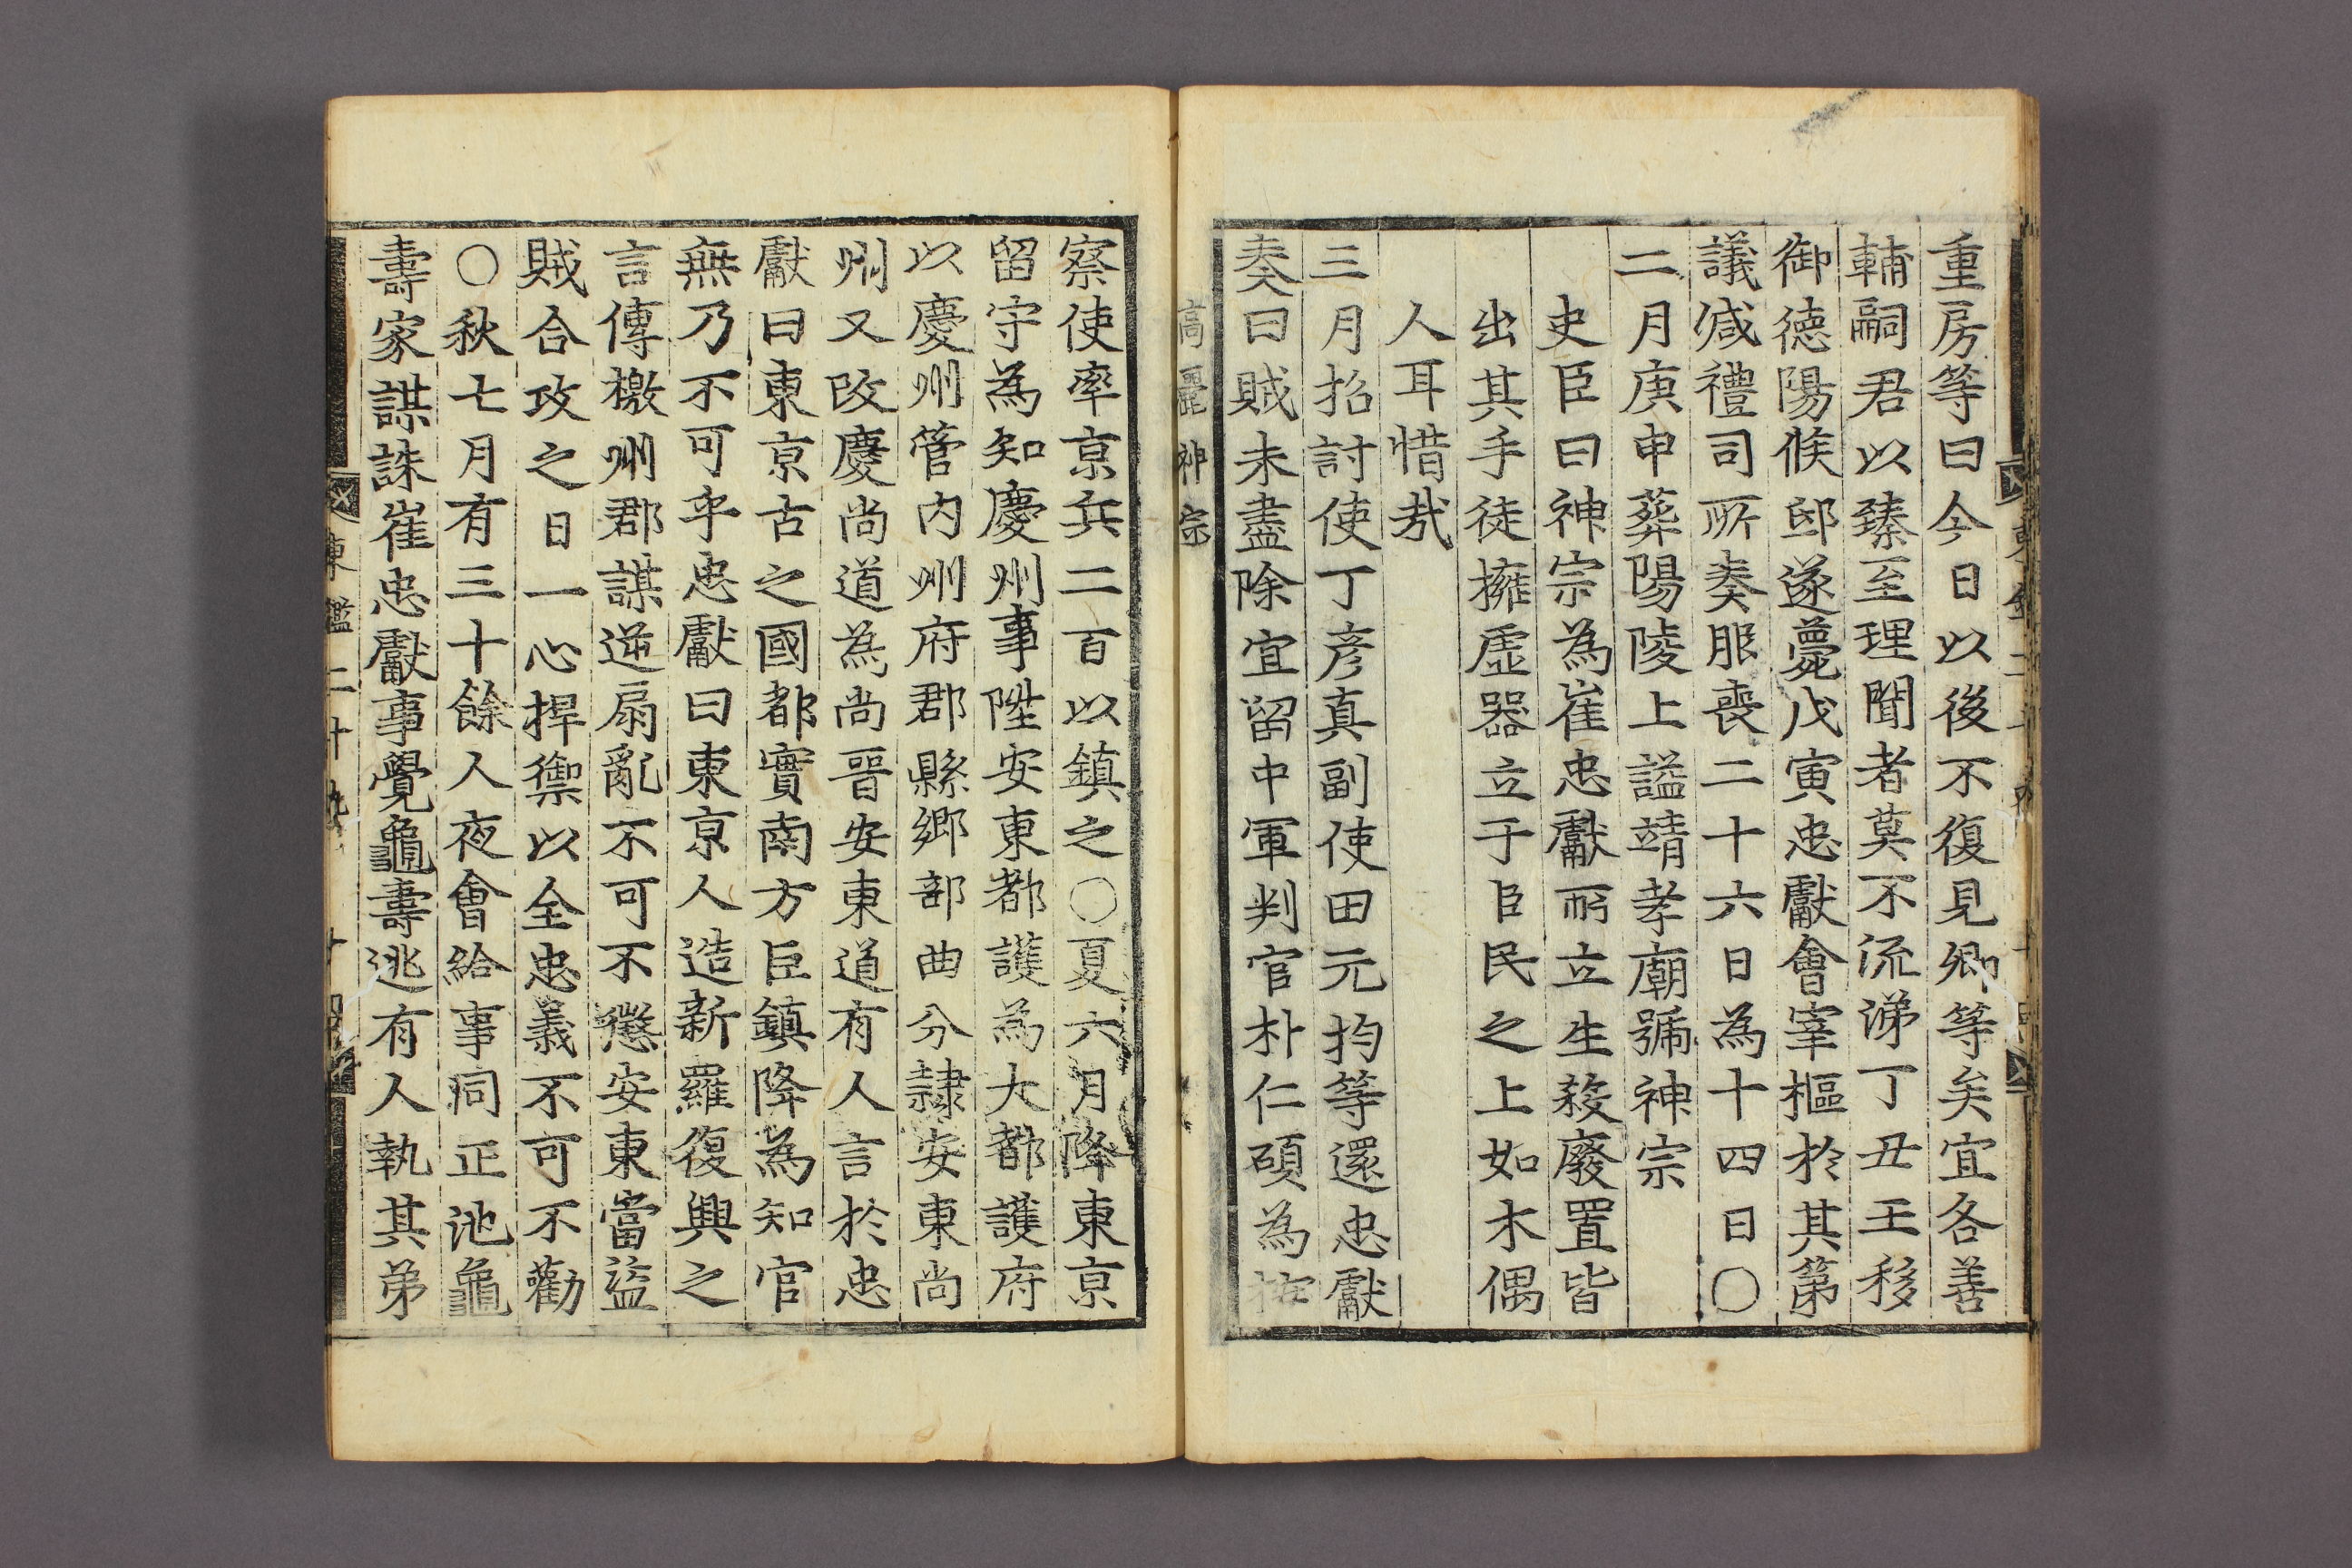 重房等曰今日以後不復見卿等矣宜各善
輔嗣君以臻至理聞者莫不流涕丁丑王移
御德陽侯邸遂薨戊寅忠獻會宰樞於其第
議减禮司所奏服喪二十六日為十四日○
二月庚申葬陽陵上謚靖孝廟號神宗
史臣曰神宗為崔忠獻所立生殺廢置皆
出其手徒擁虛器立于臣民之上如木偶
人耳惜哉
三月招討使丁彦真副使田元均等還忠獻
奏曰賊未盡除宜留中軍判官朴仁碩為按
高麗神宗
察使率京兵二百以鎮之○夏六月降東京
留守為知慶州事陞安東都護為大都護府
以慶州管内州府郡縣鄉部曲分隷安東尚
州又改慶尚道為尚晉安東道有人言於忠
獻曰東京古之國都實南方巨鎮降為知官
無乃不可乎忠獻曰東京人造新羅復興之
言傳檄州郡謀逆扇亂不可不懲安東當盜
賊合攻之日一心捍禦以全忠義不可不勸
○秋七月有三十餘人夜會給事同正池龜
壽家謀誅崔忠獻事覺龜壽逃有人執其弟
東鑑二十九